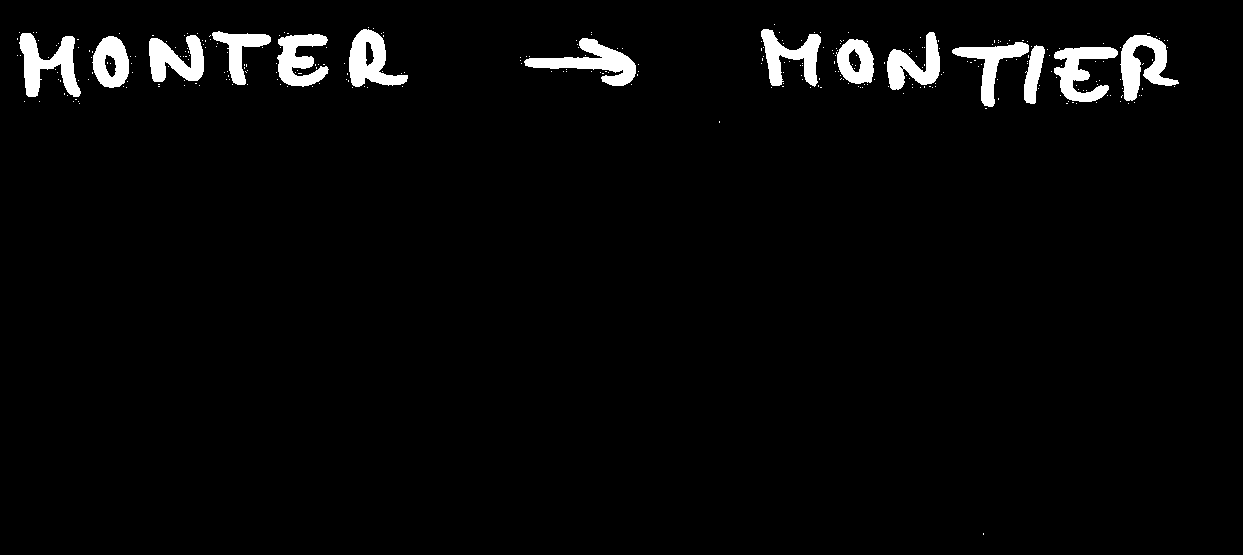 MONTER → MONTIER